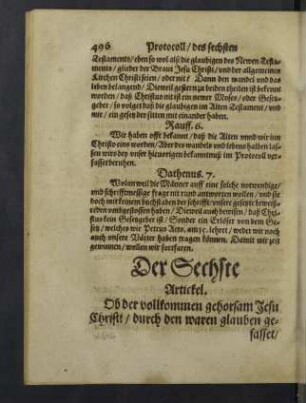 496 Protocoll / des sechsten
Testaments / eben so wol alß die glaubigen des Newen Testa-
ments / glieder der Braut Jesu Christi / und der allgemeinen
Kirchen Christi seien / oder nit? Dann den wandel und das
leben belangend / Dieweil gestern zu beiden theilen ist bekennt
worden / daß Christus nit ist ein newer Moses / oder Gesetz-
geber / so volget daß die glaubigen im Alten Testament / und
wir / ein gesetz der sitten mit einander haben.
Rauff. 6.
Wir haben offt bekannt / daß die Alten unnd wir inn
Christo eins worden / Aber des wandels und lebens halben las-
sen wirs bey unser hievorigen bekanntnuß im Protocoll ver-
fasset beruhen.
Dathenus. 7.
Wolan weil die Männer auff eine solche notwendige /
und schrifftmessige frage nit rund antworten wöllen / und sie
doch mit keinem buchstaben der schrifft / unsere gesetzte beweiß-
reden umbgestossen haben / Dieweil auch bewisen / daß Chri-
stus kein Gesetzgeber ist / Sonder ein Erlöser von dem Ge-
setz / welches wie Petrus Acto. am 15. lehret / weder wir noch
auch unsere Vätter haben tragen können. Damit wir zeit
gewinnen / wöllen wir fortfaren.
Der Sechste
Artickel.
Ob der vollkommen gehorsam Jesu
Christi / durch den waren glauben ge-
fasset /